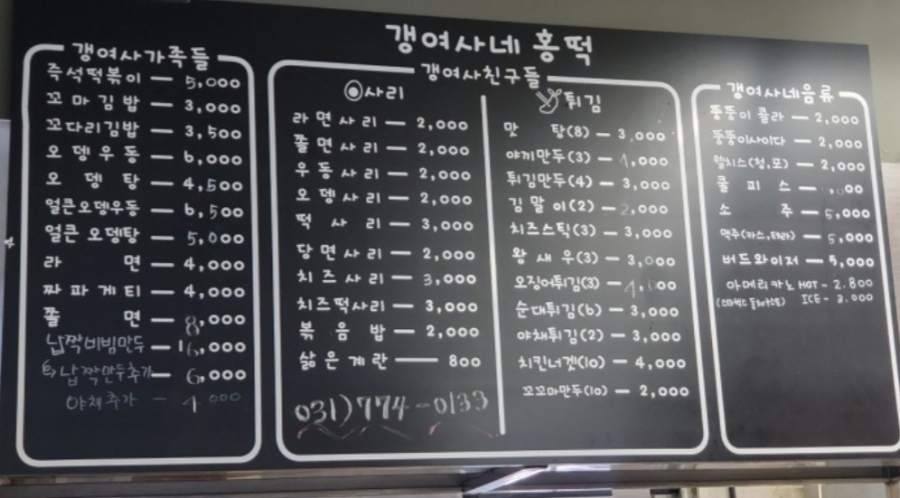 갱여사네 홍떡
갱여사가족들
즉석떡볶이 — 5,000
꼬마김밥 — 3,000
꼬다리김밥 — 3,500
오뎅우동 — 6,000
오뎅탕 — 4,500
얼큰오뎅우동 — 6,500
얼큰오뎅탕 — 5,000
라면 — 4,000
짜파게티 — 4,000
쫄면 — 8,000
납짝비빔만두 — 16,000
납짝만두추가 — 6,000
야채추가 — 1000
갱여사친구들
사리
라면사리 — 2,000
쫄면사리 — 2,000
우동사리 — 2,000
오뎅사리 — 2,000
떡사리 — 3,000
당면사리 — 2,000
치즈사리 — 3,000
치즈떡사리 — 3,000
볶음밥 — 2,000
삶은계란 — 800
031)774-0133
튀김
맛탕(8) — 3,000
야끼만두(3) — 1,000
튀김만두(4) — 3,000
김말이(2) — 2,000
치즈스틱(3) — 3,000
왕새우(3) — 3,000
오징어튀김(3) —
순대튀김(6) — 3,000
야채튀김(2) — 3,000
치킨너겟(10) — 4,000
꼬꼬마만두(10) — 2,000
갱여사네음류
뚱뚱이콜라 — 2,000
뚱뚱이사이다 — 2,000
웰치스(청,포) — 2,000
쿨피스 —
소주 — 5,000
맥주(카스,테라) — 5,000
버드와이저 — 5,000
아메리카노 HOT - 2.800
ICE - 3.000